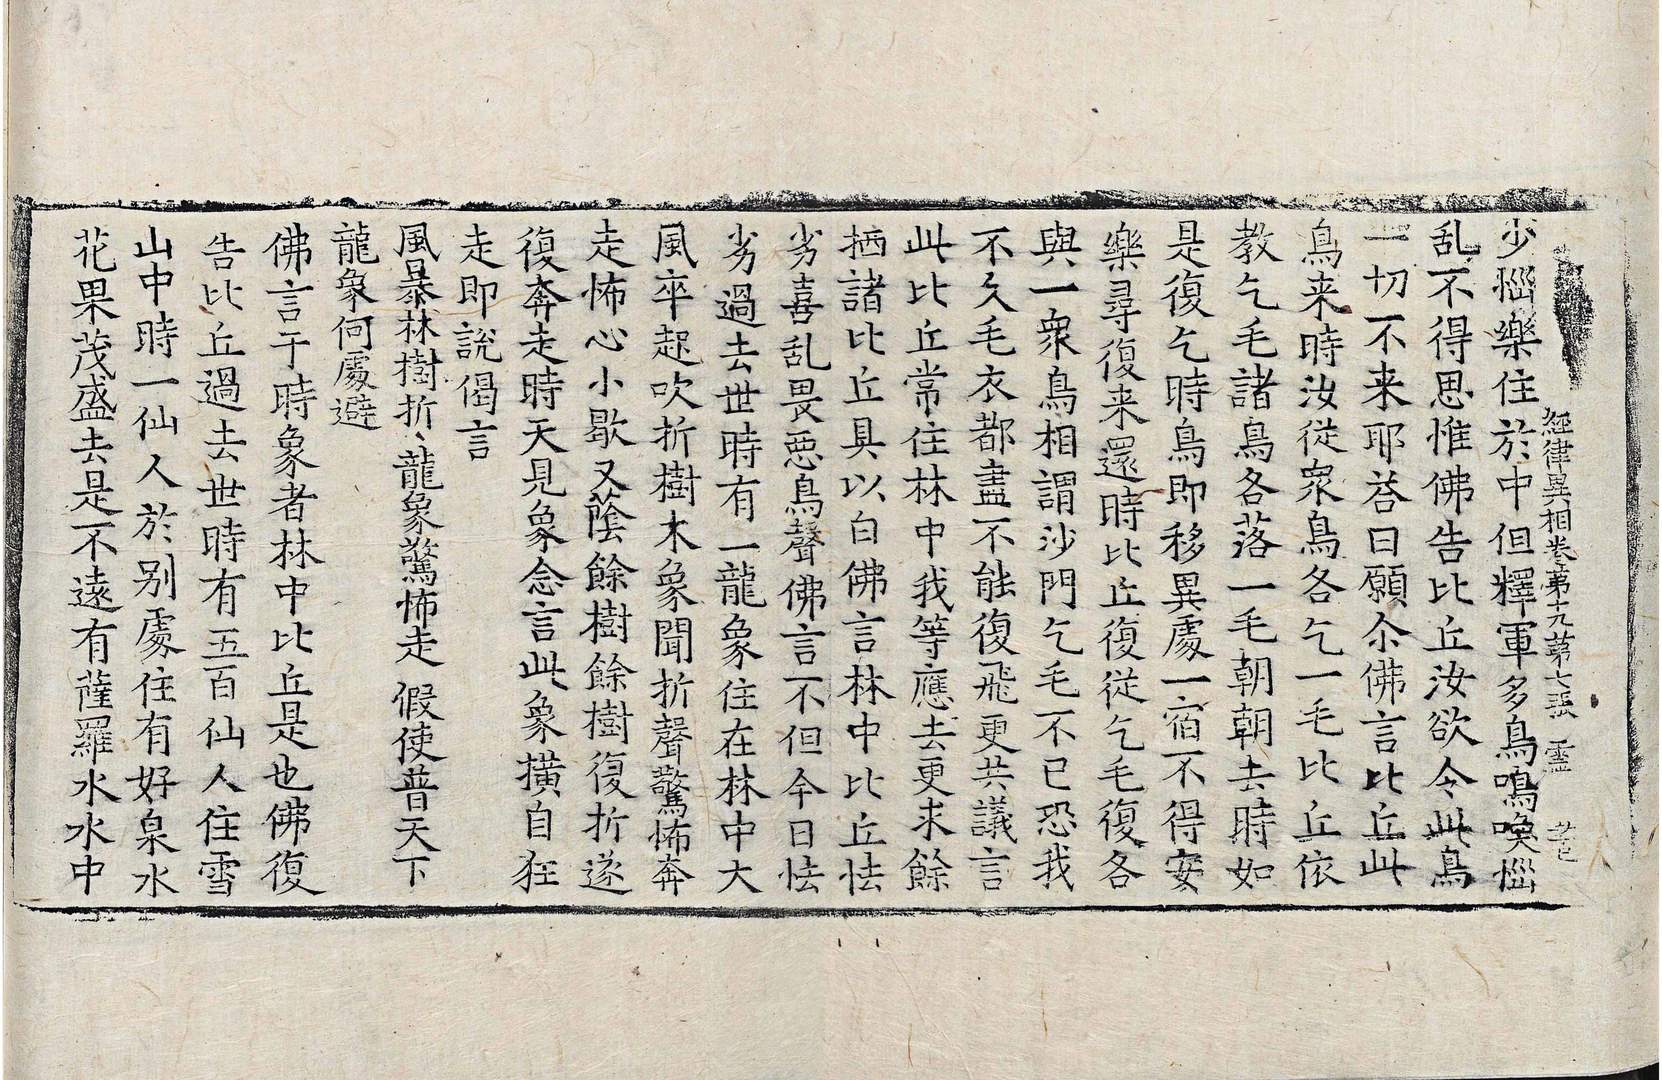 經律異相卷第十九第七張　靈
少惱樂住於中但釋軍多鳥鳴喚惱
乱不得思惟佛告比丘汝欲令此鳥
一切不来耶荅曰願尒佛言比丘此
鳥来時汝從衆鳥各乞一毛比丘依
教乞毛諸鳥各落一毛朝朝去時如
是復乞時鳥即移異處一宿不得安
樂尋復来還時比丘復從乞毛復各
與一衆鳥相謂沙門乞毛不已恐我
不久毛衣都盡不能復飛更共議言
此比丘常住林中我等應去更求餘
栖諸比丘具以白佛言林中比丘怯
劣喜乱畏惡鳥聲佛言不但今日怯
劣過去世時有一龍象住在林中大
風卒起吹折樹木象聞折聲驚怖奔
走怖心小歇又蔭餘樹餘樹復折遂
復奔走時天見象念言此象橫自狂
走即說偈言
風暴林樹折、龍象驚怖走　假使普天下
龍象何處避
佛言于時象者林中比丘是也佛復
告比丘過去世時有五百仙人住雪
山中時一仙人於别處住有好泉水
花果茂盛去是不遠有薩羅水水中